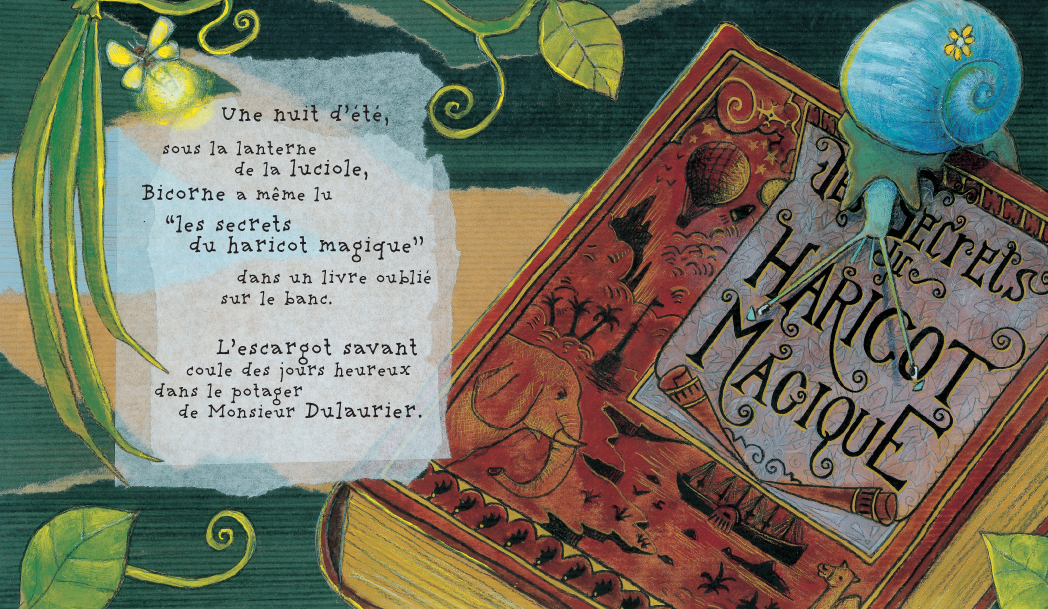 Une nuit d'été,
sous la lanterne
de la luciole,
Bicorne a même lu
"les secrets
du haricot magique"
dans un livre oublié
sur le banc.
L'escargot savant
coule des jours heureux
dans le potager
de Monsieur Dulaurier.
Les Secrets
du
HARICOT
MAGIQUE